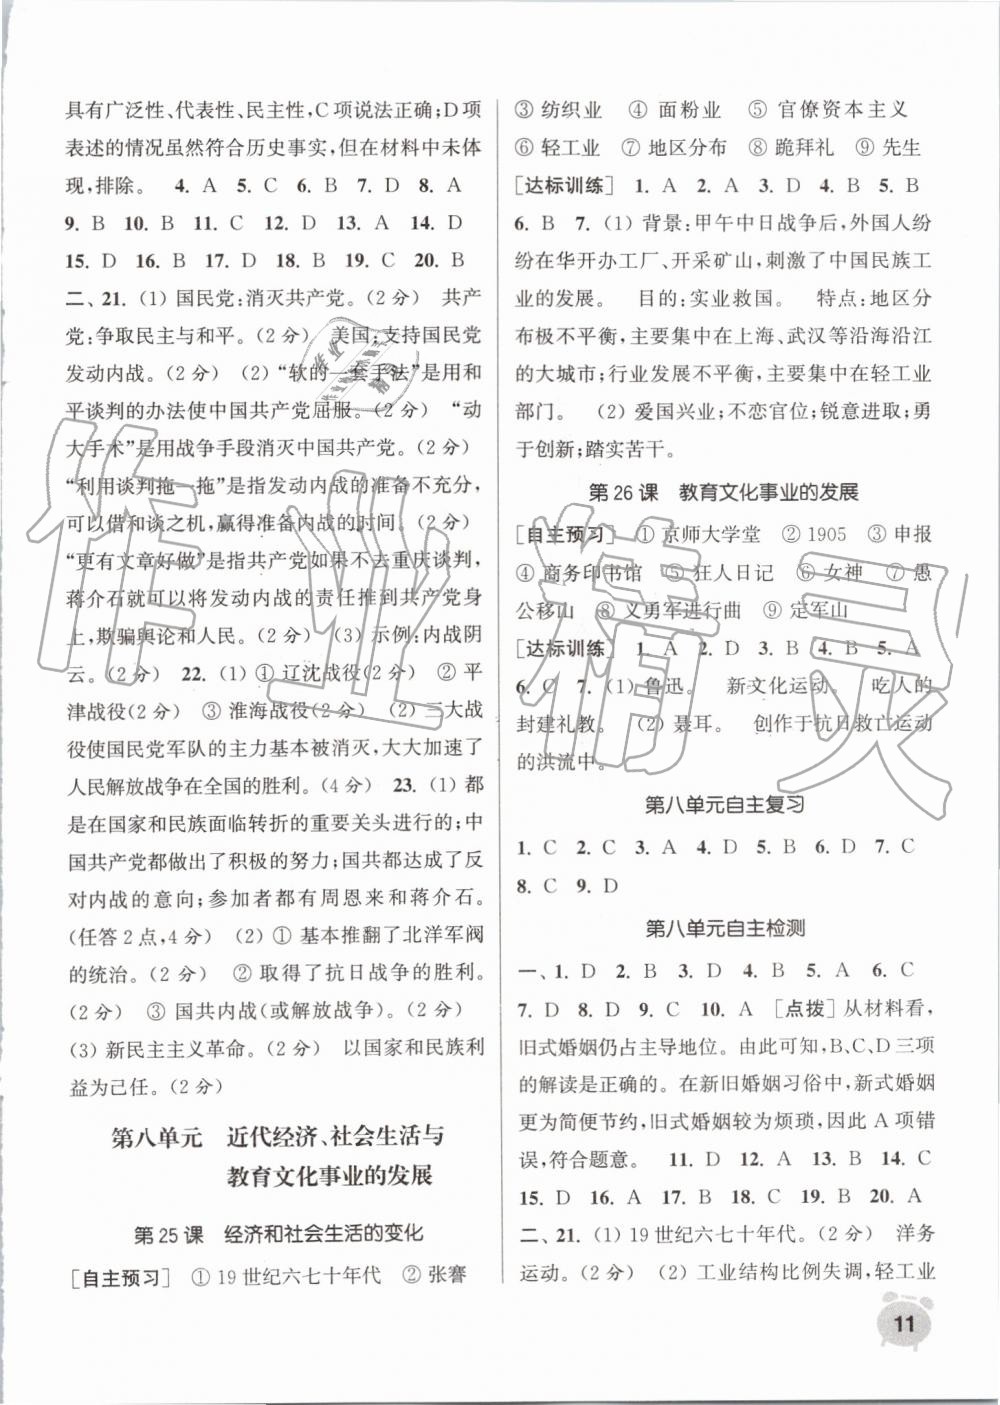 具有广泛性、代表性、民主性,C项说法正确;D项
表述的情况虽然符合历史事实,但在材料中未体
现,排除。 4. A 5. C 6. B 7. D 8. A
9. B 10. B 11. C 12. D 13. A 14. D
15. D 16. B 17. D 18. B 19. C 20. B
二、21. (1) 国民党:消灭共产党。(2分) 共产
党:争取民主与和平。(2分) 美国:支持国民党
发动内战。(2分) (2)“软的一套手法”是用和
平谈判的办法使中国共产党屈服。(2分) “动
大手术”是用战争手段消灭中国共产党。(2分)
“利用谈判拖一拖”是指发动内战的准备不充分,
可以借和谈之机,赢得准备内战的时间。(2分)
“更有文章好做”是指共产党如果不去重庆谈判,
蒋介石就可以将发动内战的责任推到共产党身
上,欺骗舆论和人民。(2分) (3) 示例:内战阴
云。(2分) 22. (1) ① 辽沈战役(2分) ② 平
津战役(2分) ③ 淮海战役(2分) (2) 三大战
役使国民党军队的主力基本被消灭,大大加速了
人民解放战争在全国的胜利。(4分) 23. (1) 都
是在国家和民族面临转折的重要关头进行的;中
国共产党都做出了积极的努力;国共都达成了反
对内战的意向;参加者都有周恩来和蒋介石。
(任答2点,4分) (2) ① 基本推翻了北洋军阀
的统治。(2分) ② 取得了抗日战争的胜利。
(2分) ③ 国共内战(或解放战争)。(2分)
(3) 新民主主义革命。(2分) 以国家和民族利
益为己任。(2分)
第八单元 近代经济、社会生活与
教育文化事业的发展
第25课 经济和社会生活的变化
[自主预习] ① 19世纪六七十年代 ② 张謇
③ 纺织业 ④ 面粉业 ⑤ 官僚资本主义
⑥ 轻工业 ⑦ 地区分布 ⑧ 跪拜礼 ⑨ 先生
[达标训练] 1. A 2. A 3. D 4. B 5. B
6. B 7. (1) 背景:甲午中日战争后,外国人纷
纷在华开办工厂、开采矿山,刺激了中国民族工
业的发展。 目的:实业救国。 特点:地区分
布极不平衡,主要集中在上海、武汉等沿海沿江
的大城市;行业发展不平衡,主要集中在轻工业
部门。 (2) 爱国兴业;不恋官位;锐意进取;勇
于创新;踏实苦干。
第26课 教育文化事业的发展
[自主预习] ① 京师大学堂 ② 1905 ③ 申报
④ 商务印书馆 ⑤ 狂人日记 ⑥ 女神 ⑦ 愚
公移山 ⑧ 义勇军进行曲 ⑨ 定军山
[达标训练] 1. A 2. D 3. B 4. B 5. A
6. C 7. (1) 鲁迅。 新文化运动。 吃人的
封建礼教。 (2) 聂耳。 创作于抗日救亡运动
的洪流中。
第八单元自主复习
1. C 2. C 3. A 4. D 5. D 6. D 7. C
8. C 9. D
第八单元自主检测
一、1. D 2. B 3. D 4. B 5. A 6. C
7. D 8. D 9. C 10. A [点拨] 从材料看,
旧式婚姻仍占主导地位。由此可知,B、C、D三项
的解读是正确的。在新旧婚姻习俗中,新式婚姻
更为简便节约,旧式婚姻较为烦琐,因此A项错
误,符合题意。 11. D 12. A 13. B 14. C
15. D 16. A 17. B 18. C 19. B 20. A
二、21. (1) 19世纪六七十年代。(2分) 洋务
运动。(2分) (2) 工业结构比例失调,轻工业
11
作业精灵